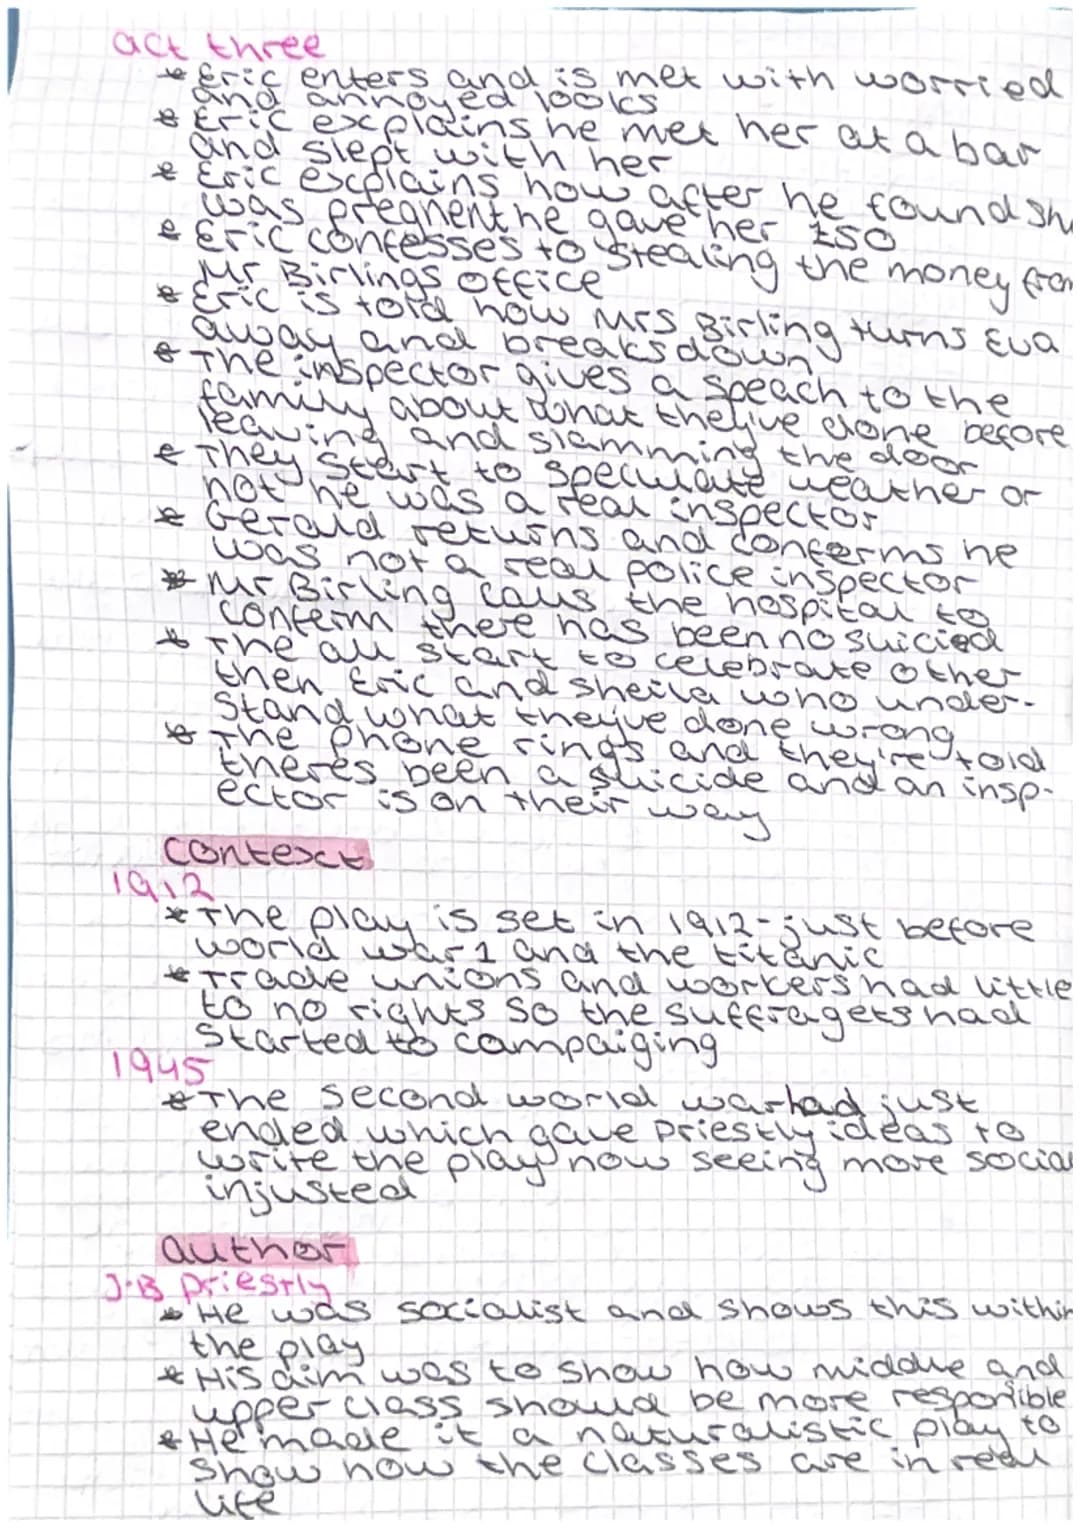 act three
* Eric enters and is met with worried
and annoyed looks
* Eric explains he met her at a bar
and slept with her
* Eric explains how after he found sh
was pregnent he gave her £50
* Eric confesses to stealing the money from
Mr Birlings office
* Eric is told how Mrs Birling turns Eva
away and breaks down
* The inspector gives a speach to the
family about what they've done before
leaving and slamming the door
* They start to speculate weather or
not he was a real inspector
* Gerald returns and conferms he
was not a real police inspector
* Mr Birling calls the hospital to
conferm there has been no suicied
* The all start to celebrate other
then Eric and Sheila who under-
stand what they've done wrong
* The phone rings and they're told
theres been a suicide and an insp-
ector is on their way
context
1912
* The play is set in 1912 - just before
world war 1 and the titanic
* Trade unions and workers had little
to no rights so the suffragets had
started to campaiging
1945
* The second world war had just
ended which gave priestly ideas to
write the play now seeing more social
injusted
author
J.B priestly
* He was socialist and shows this within
the play
* His aim was to show how middle and
upper class should be more responible
* He made it a naturalistic play to
show how the classes are in real
life